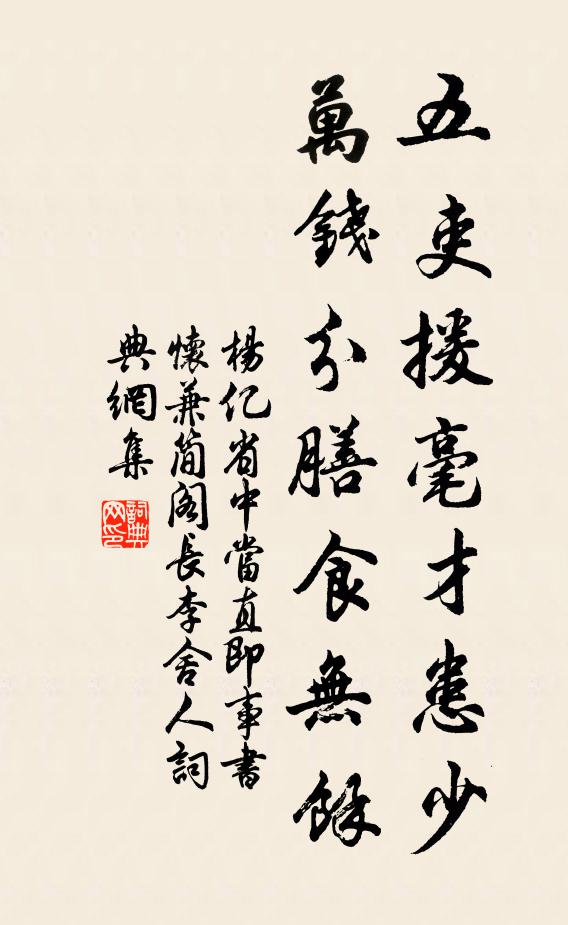 五吏援毫才患少
萬錢分膳食無餘
楊亿省中當直即事書
懷兼简阁長李舍人詞
典網集
詞典网印